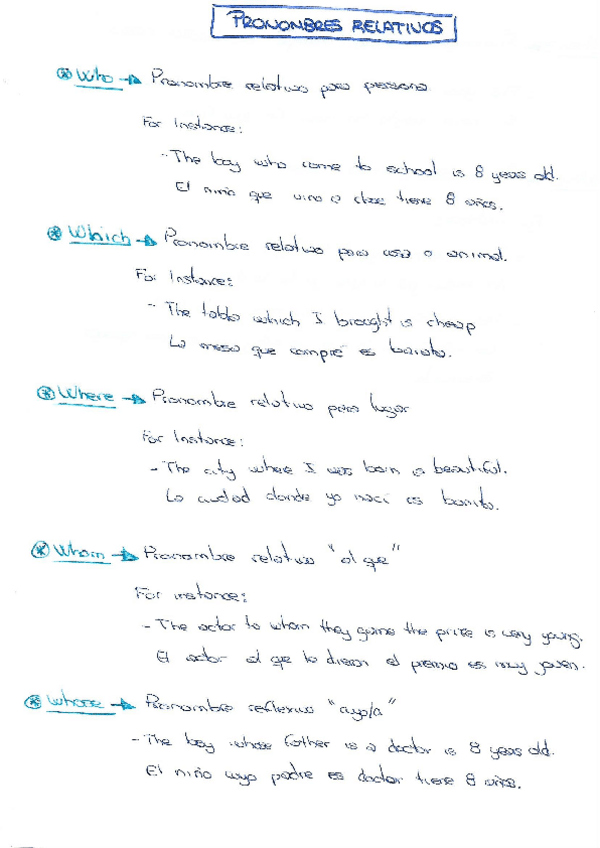 PRONOMBRES RELATIVOS
* Who → Pronombre relativo para persona
For Instance:
- The boy who came to school is 8 years old.
El niño que vino a clase tiene 8 años.
* Which → Pronombre relativo para cosa o animal.
For Instance:
- The table which I brought is cheap
La mesa que compré es barata.
* Where → Pronombre relativo para lugar
For Instance:
- The city where I was born is beautiful.
La ciudad donde yo nací es bonito.
* Whom → Pronombre relativo "al que"
For instance:
- The actor to whom they gave the prize is very young.
El actor al que le dieron el premio es muy joven.
* Whose → Pronombre reflexivo "cuyo/a"
- The boy whose father is a doctor is 8 years old.
El niño cuyo padre es doctor tiene 8 años.